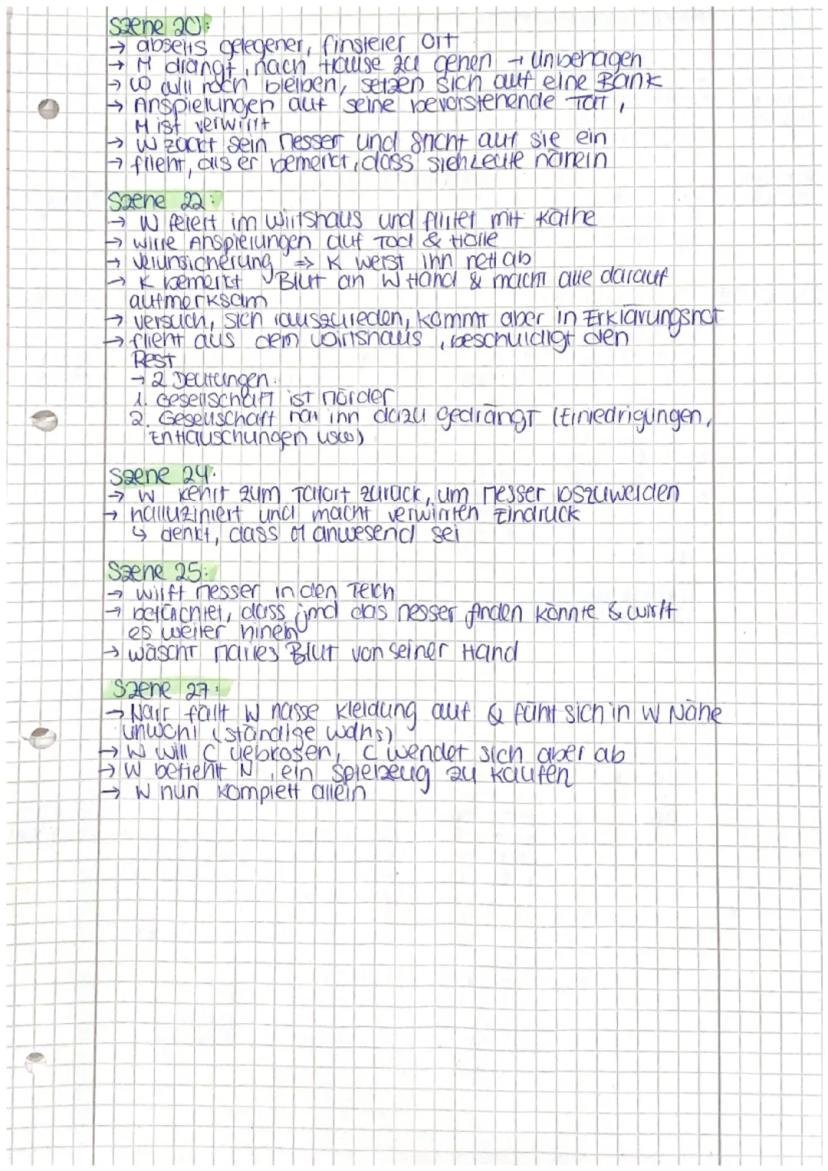 Szene 20:
→ abseits gelegener, finsterer Ort
→ M drängt, nach Hause zu gehen → Unbehagen
→ W will noch bleiben, setzen sich auf eine Bank
→ Anspielungen auf seine bevorstehende Tat,
M ist verwirrt
→ W zückt sein Messer und sticht auf sie ein
→ flieht, als er bemerkt, dass sich Leute nähern
Szene 22:
→ W feiert im Wirtshaus und flirtet mit Käthe
→ wirre Anspielungen auf Tod & Hölle
→ Verunsicherung => K weist ihn nett ab
→ K bemerkt Blut an W Hand & macht alle darauf
aufmerksam
→ versucht, sich rauszureden, kommt aber in Erklärungsnot
→ flieht aus dem Wirtshaus, beschuldigt den
Rest
→ 2 Deutungen:
1. Gesellschaft ist Mörder
2. Gesellschaft hat ihn dazu gedrängt (Erniedrigungen,
Enttäuschungen usw)
Szene 24:
→ W kehrt zum Tatort zurück, um Messer loszuwerden
→ halluziniert und macht verwirrten Eindruck
↳ denkt, dass M anwesend sei
Szene 25:
→ wirft Messer in den Teich
→ befürchtet, dass jmd das Messer finden könnte & wirft
es weiter hinein
→ wäscht Maries Blut von seiner Hand
Szene 27:
→ Narr fällt W nasse Kleidung auf & fühlt sich in W Nähe
unwohl (ständige Wdhs)
→ W will C liebkosen, C wendet sich aber ab
→ W befiehlt N, ein Spielzeug zu kaufen
→ W nun komplett allein